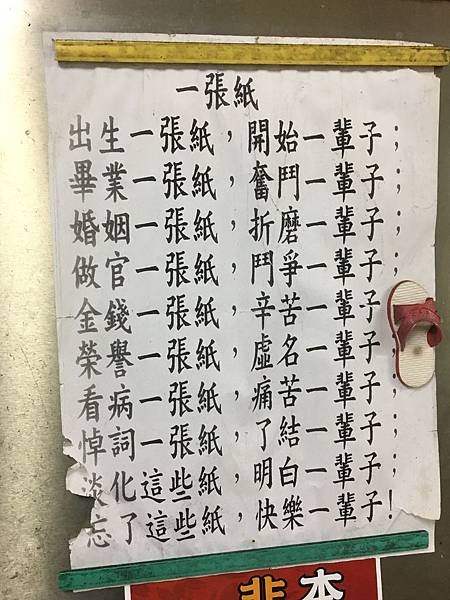 一張紙
出生一張紙，開始一輩子；
畢業一張紙，奮鬥一輩子；
婚姻一張紙，折磨一輩子；
做官一張紙，鬥爭一輩子；
金錢一張紙，辛苦一輩子；
榮譽一張紙，虛名一輩子；
看病一張紙，痛苦一輩子；
悼詞一張紙，了結一輩子；
淡化這些紙，明白一輩子；
忘了這些紙，快樂一輩子！
非本